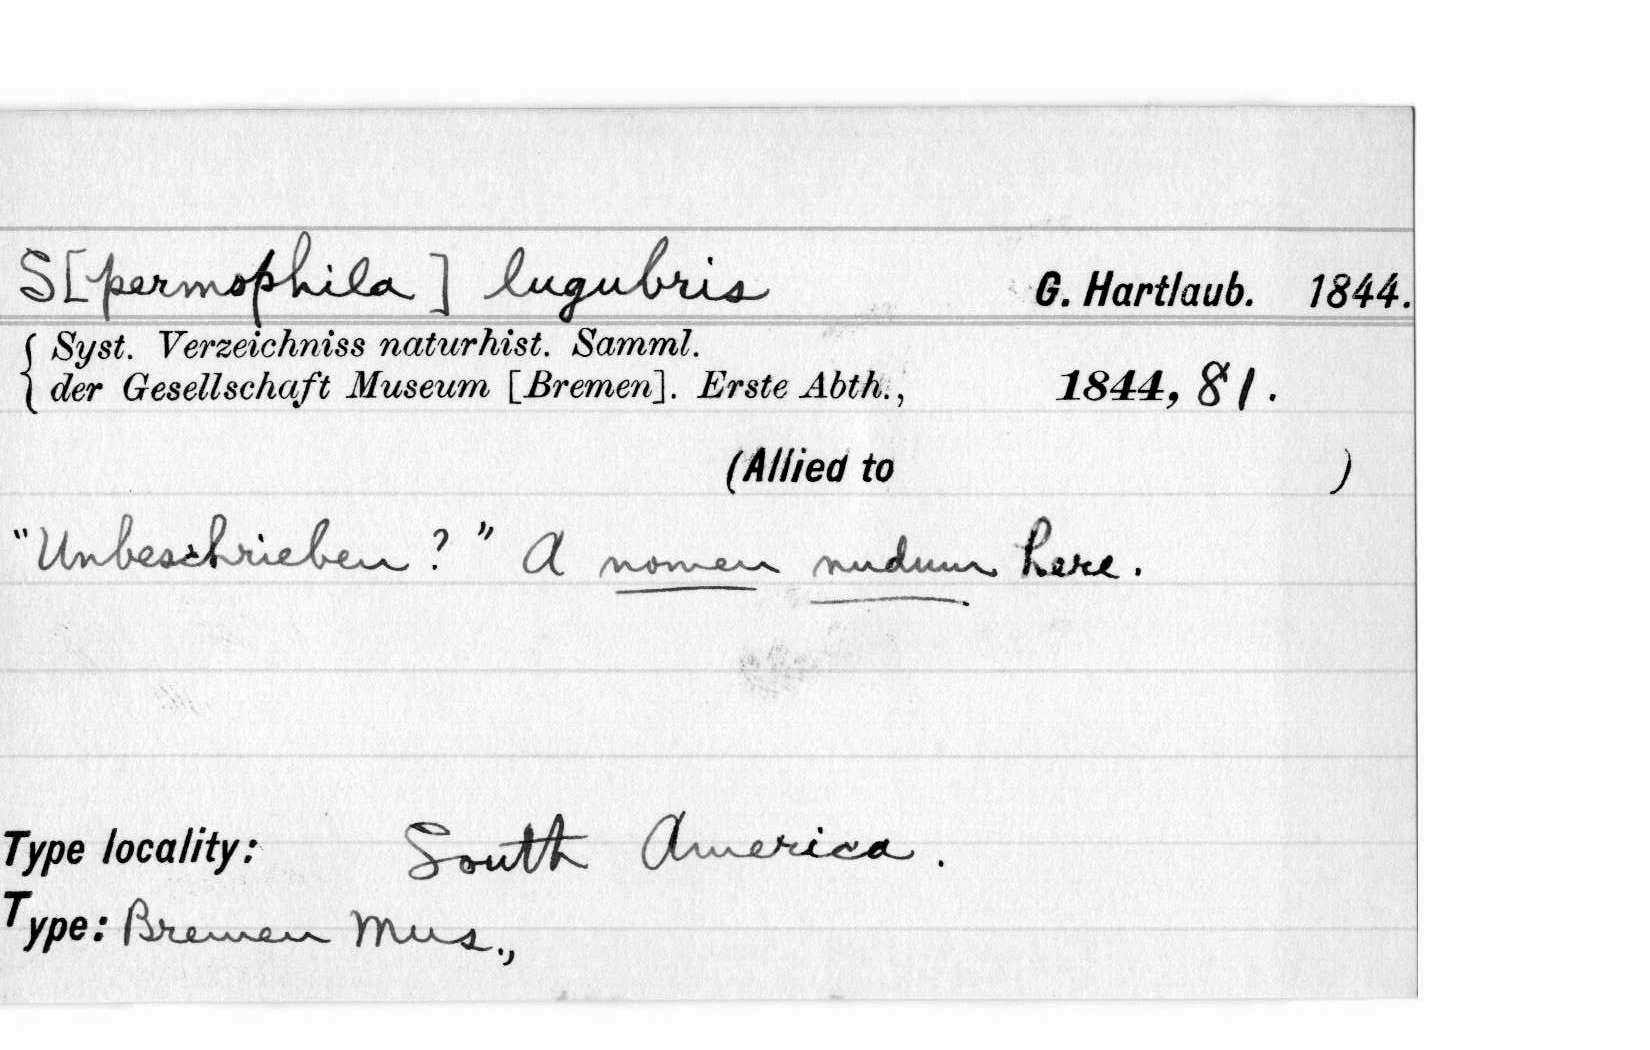 S[permophila] lugubris G. Hartlaub. 1844.
Syst. Verzeichniss naturhist. Samml.
der Gesellschaft Museum [Bremen]. Erste Abth., 1844, 81.
(Allied to )
"Unbeschrieben?" A nomen nudum here.
Type locality: South America.
Type: Bremen Mus.,